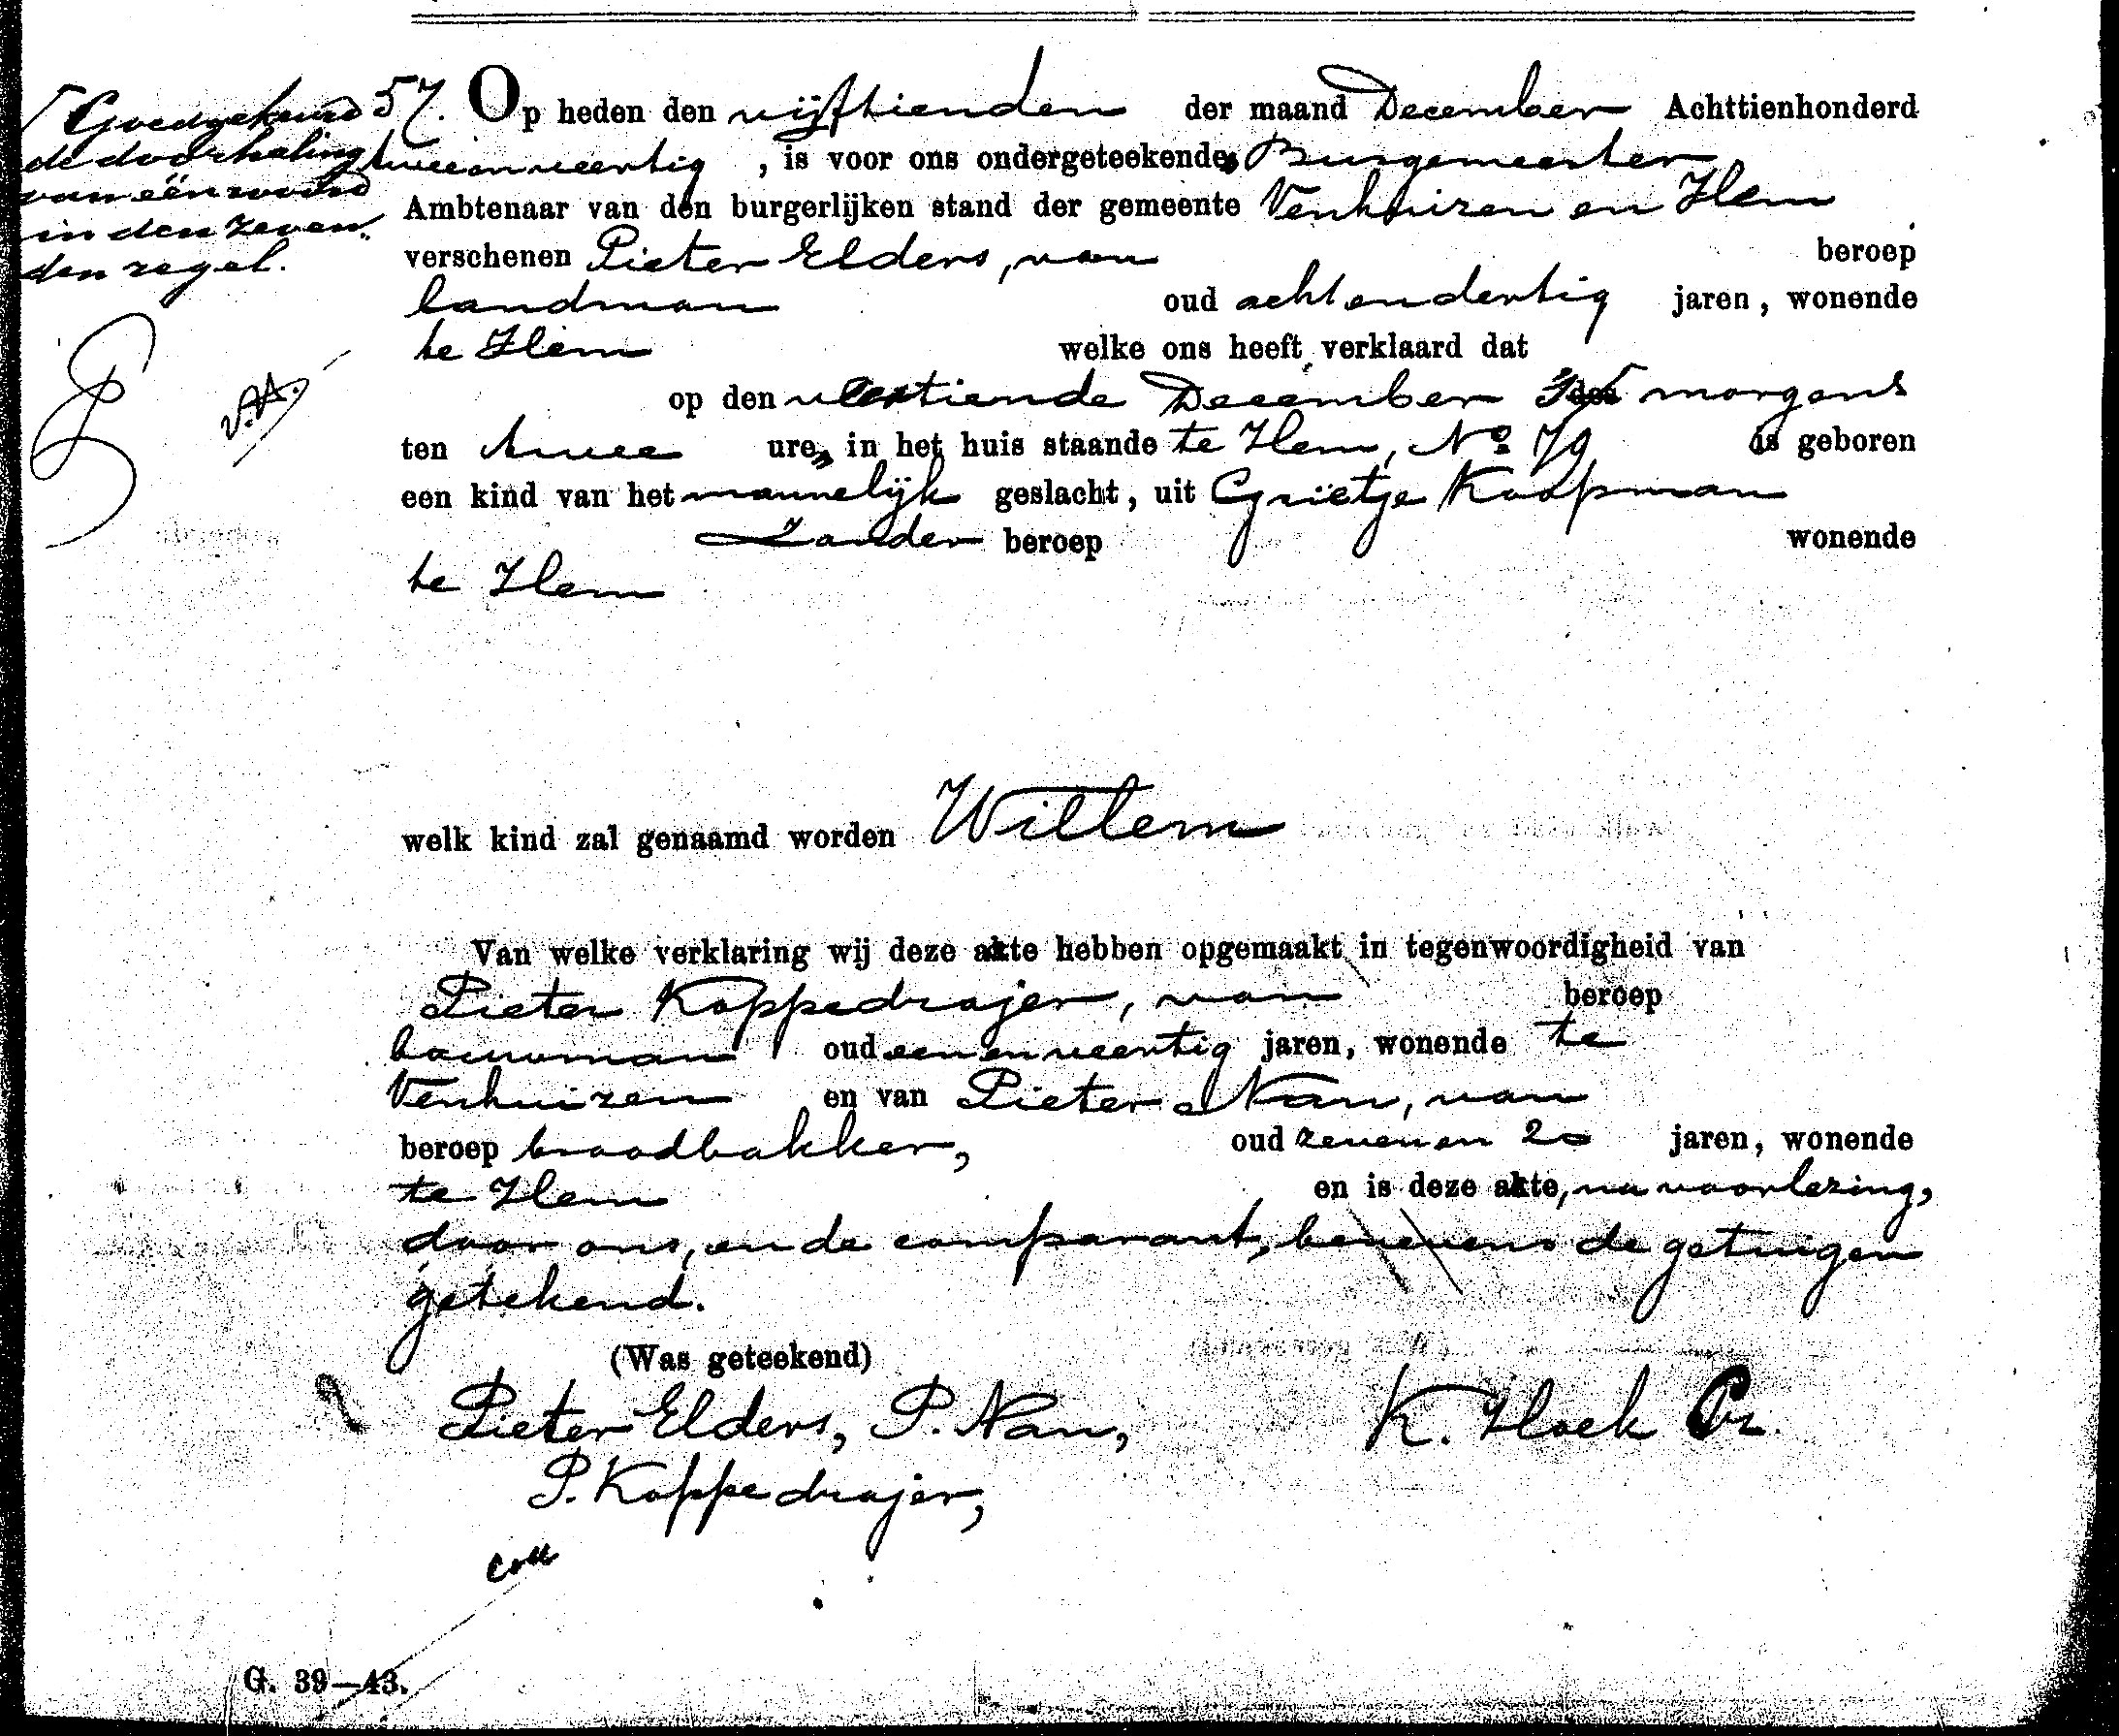 Goedgekeurd
de doorhaling
van één woord
in den zeven-
den regel.
57. Op heden den vijftienden der maand December Achttienhonderd
tweeenveertig, is voor ons ondergeteekende, Burgemeester
Ambtenaar van den burgerlijken stand der gemeente Venhuizen en Hem
verschenen Pieter Elders, van beroep
landman oud achtendertig jaren, wonende
te Hem welke ons heeft verklaard dat
op den veertiende December des morgens
ten twee ure, in het huis staande te Hem, No. 79 is geboren
een kind van het mannelijk geslacht, uit Grietje Koopman
zonder beroep wonende
te Hem
welk kind zal genaamd worden Willem
Van welke verklaring wij deze akte hebben opgemaakt in tegenwoordigheid van
Pieter Koppedrajer, van beroep
bouwman oud eenenveertig jaren, wonende te
Venhuizen en van Pieter Nan, van
beroep broodbakker, oud zevenen 20 jaren, wonende
te Hem en is deze akte, na voorlezing,
door ons, en de comparant, benevens de getuigen
getekend.
(Was geteekend)
Pieter Elders, P. Nan, K. Hoek Pz.
P. Koppedrajer,
coll
G. 39—43.